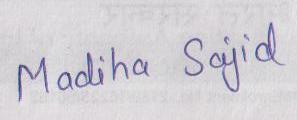 Madiha Sajid